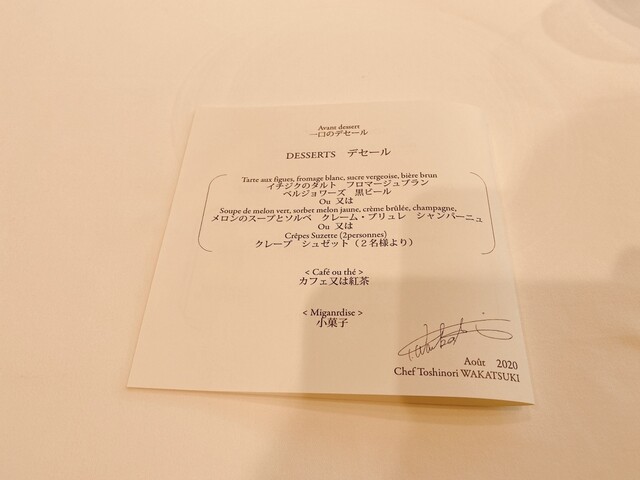 Avant dessert
一口のデセール
DESSERTS デセール
Tarte aux figues, fromage blanc, sucre vergeoise, bière brun
イチジクのタルト フロマージュブラン
ベルジョワーズ 黒ビール
Ou 又は
Soupe de melon vert, sorbet melon jaune, crème brûlée, champagne,
メロンのスープとソルベ クレーム・ブリュレ シャンパーニュ
Ou 又は
Crêpes Suzette (2personnes)
クレープ シュゼット（２名様より）
< Café ou thé >
カフェ又は紅茶
< Miganrdise >
小菓子
Août 2020
Chef Toshinori WAKATSUKI